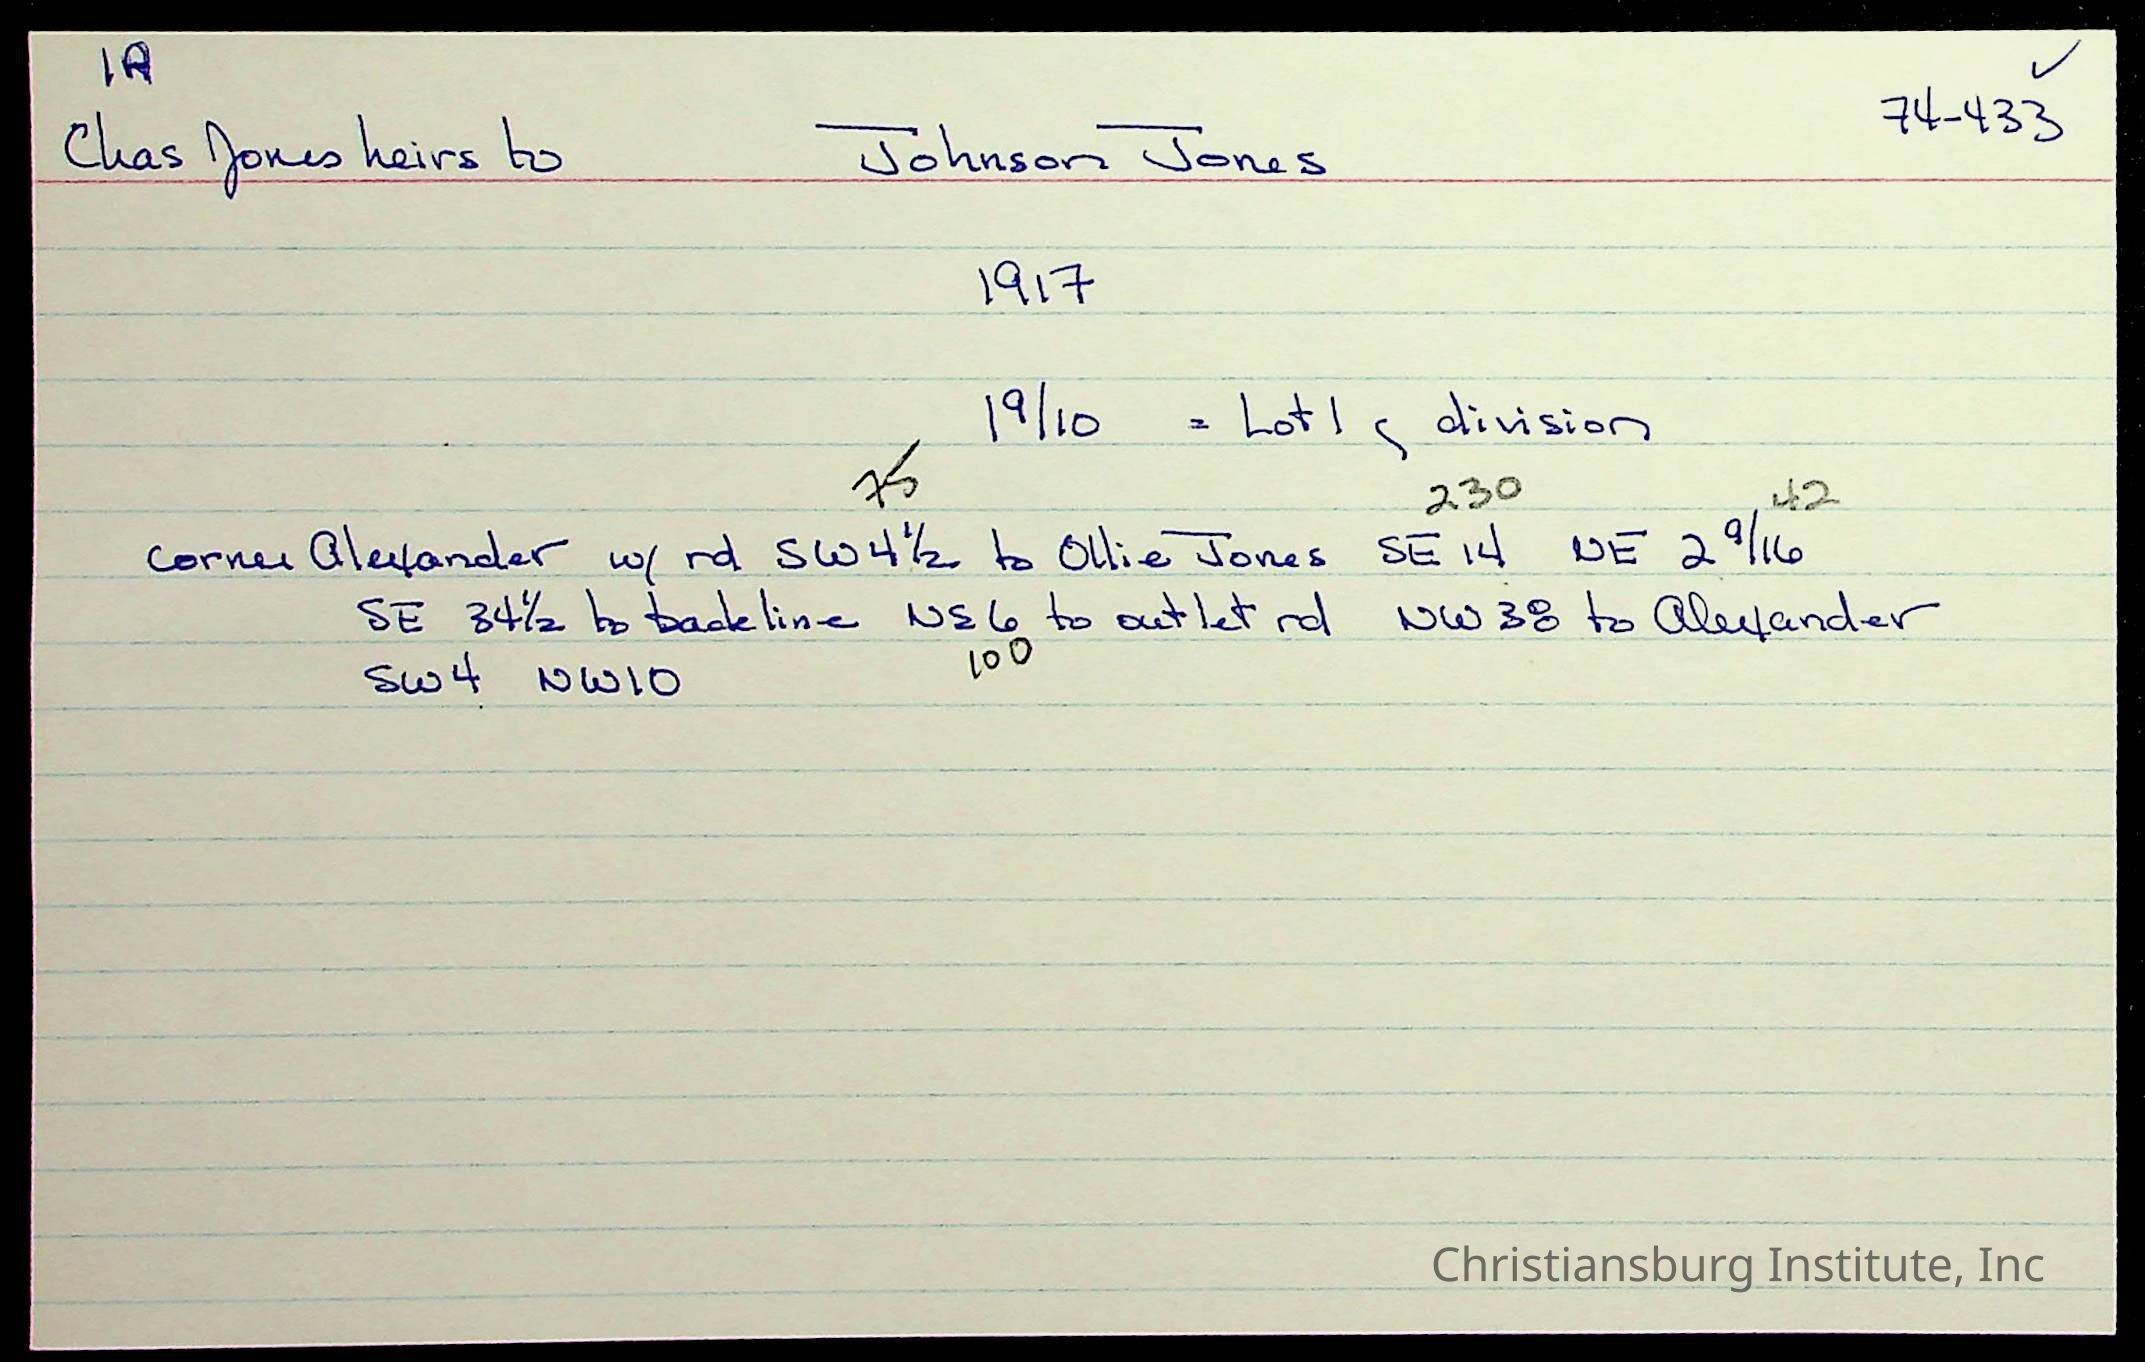 1A
74-433
Chas Jones heirs to Johnson Jones
1917
19/10 = Lot 1 division
75 230 42
corner Alexander w/ rd SW 4 1/2 to Ollie Jones SE 14 NE 2 9/16
SE 34 1/2 to backline NE 6 to outlet rd NW 38 to Alexander
100
SW 4 NW 10
Christiansburg Institute, Inc